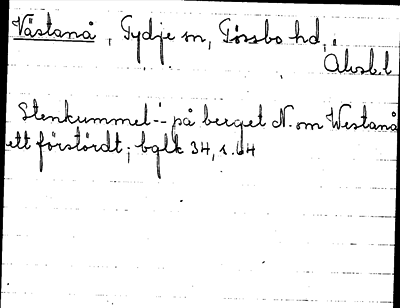 Västanå, Tydje sn, Tössbo hd,
Älvsb.l
Stenkummel -:- på berget N. om Westanå
ett förstördt; bglk 34, s. 64